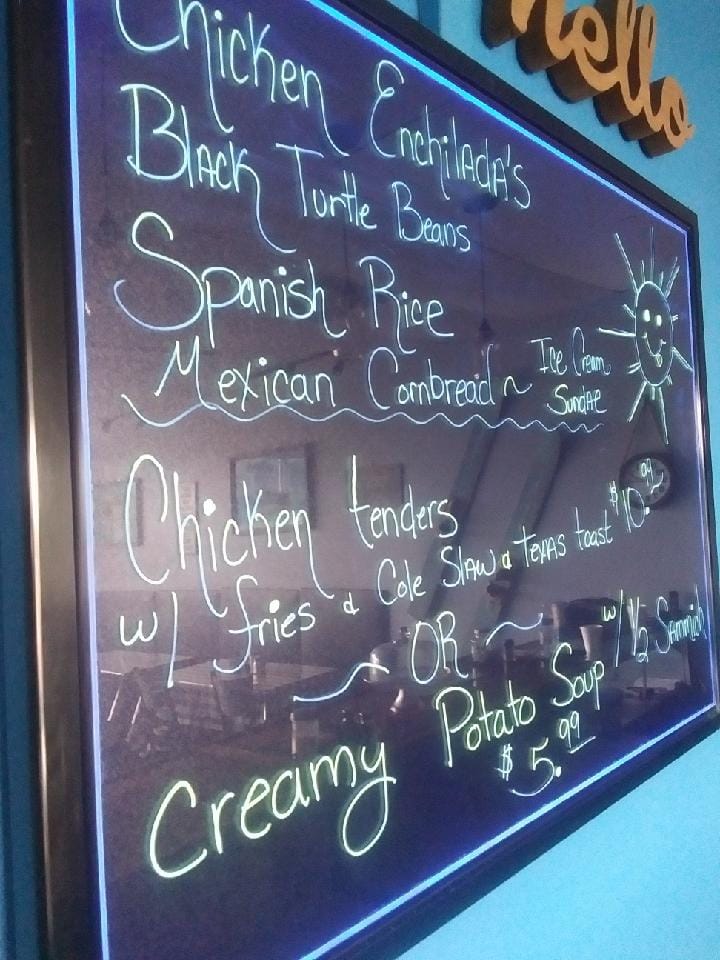 hello
Chicken Enchilada's
Black Turtle Beans
Spanish Rice
Mexican Cornbread ~ Ice Cream
Sundae
Chicken tenders
w/ fries & Cole Slaw & Texas toast $10.99
~ OR ~
Creamy Potato Soup w/ 1/2 Sammich
$5.99